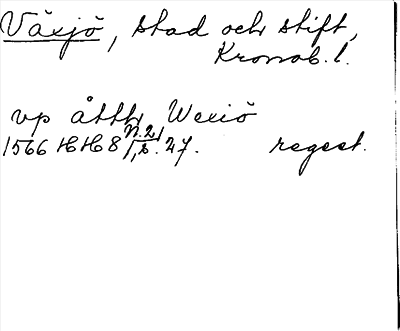 Växjö, stad och stift,
Kronob. l.
vp åttlr Wexiö
N. 21
1566 HH 8 1, s. 27. regest.